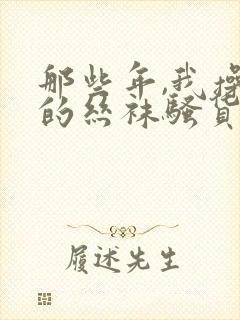 那些年,我操
的丝袜骚
履述先生